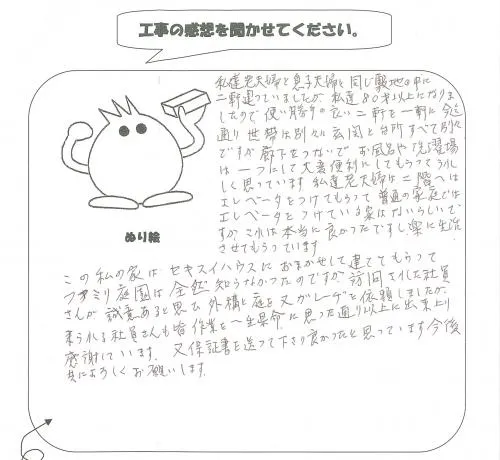 工事の感想を聞かせてください。
私達老夫婦と息子夫婦と同じ敷地の中に
二軒建っていましたが、私達80才以上になりま
したので使い勝手の良い二軒を一軒に 今迄
通り世帯は別々に玄関と台所すべて別々
ですが廊下をつないで お風呂や洗濯場
は一つにして大変便利にしてもらってうれ
しく思っています 私達老夫婦は二階へは
エレベータをつけてもらって 普通の家庭では
エレベータをつけている家はないらしいで
すが これは本当に良かったですし楽に生活
させてもらっています
ぬり絵
この私の家は セキスイハウスに おまかせして建ててもらって
ファミリ庭園は 全然知らなかったのですが 訪問された社員
さんが 誠意あると思い 外構と庭を 又ガレーヂと依頼しましたが、
来られる社員さんも皆 作業を一生懸命に 思った通り以上に出来上り
感謝しています。 又保証書を送って下さり良かったと思っています 今後
共によろしくお願いします。